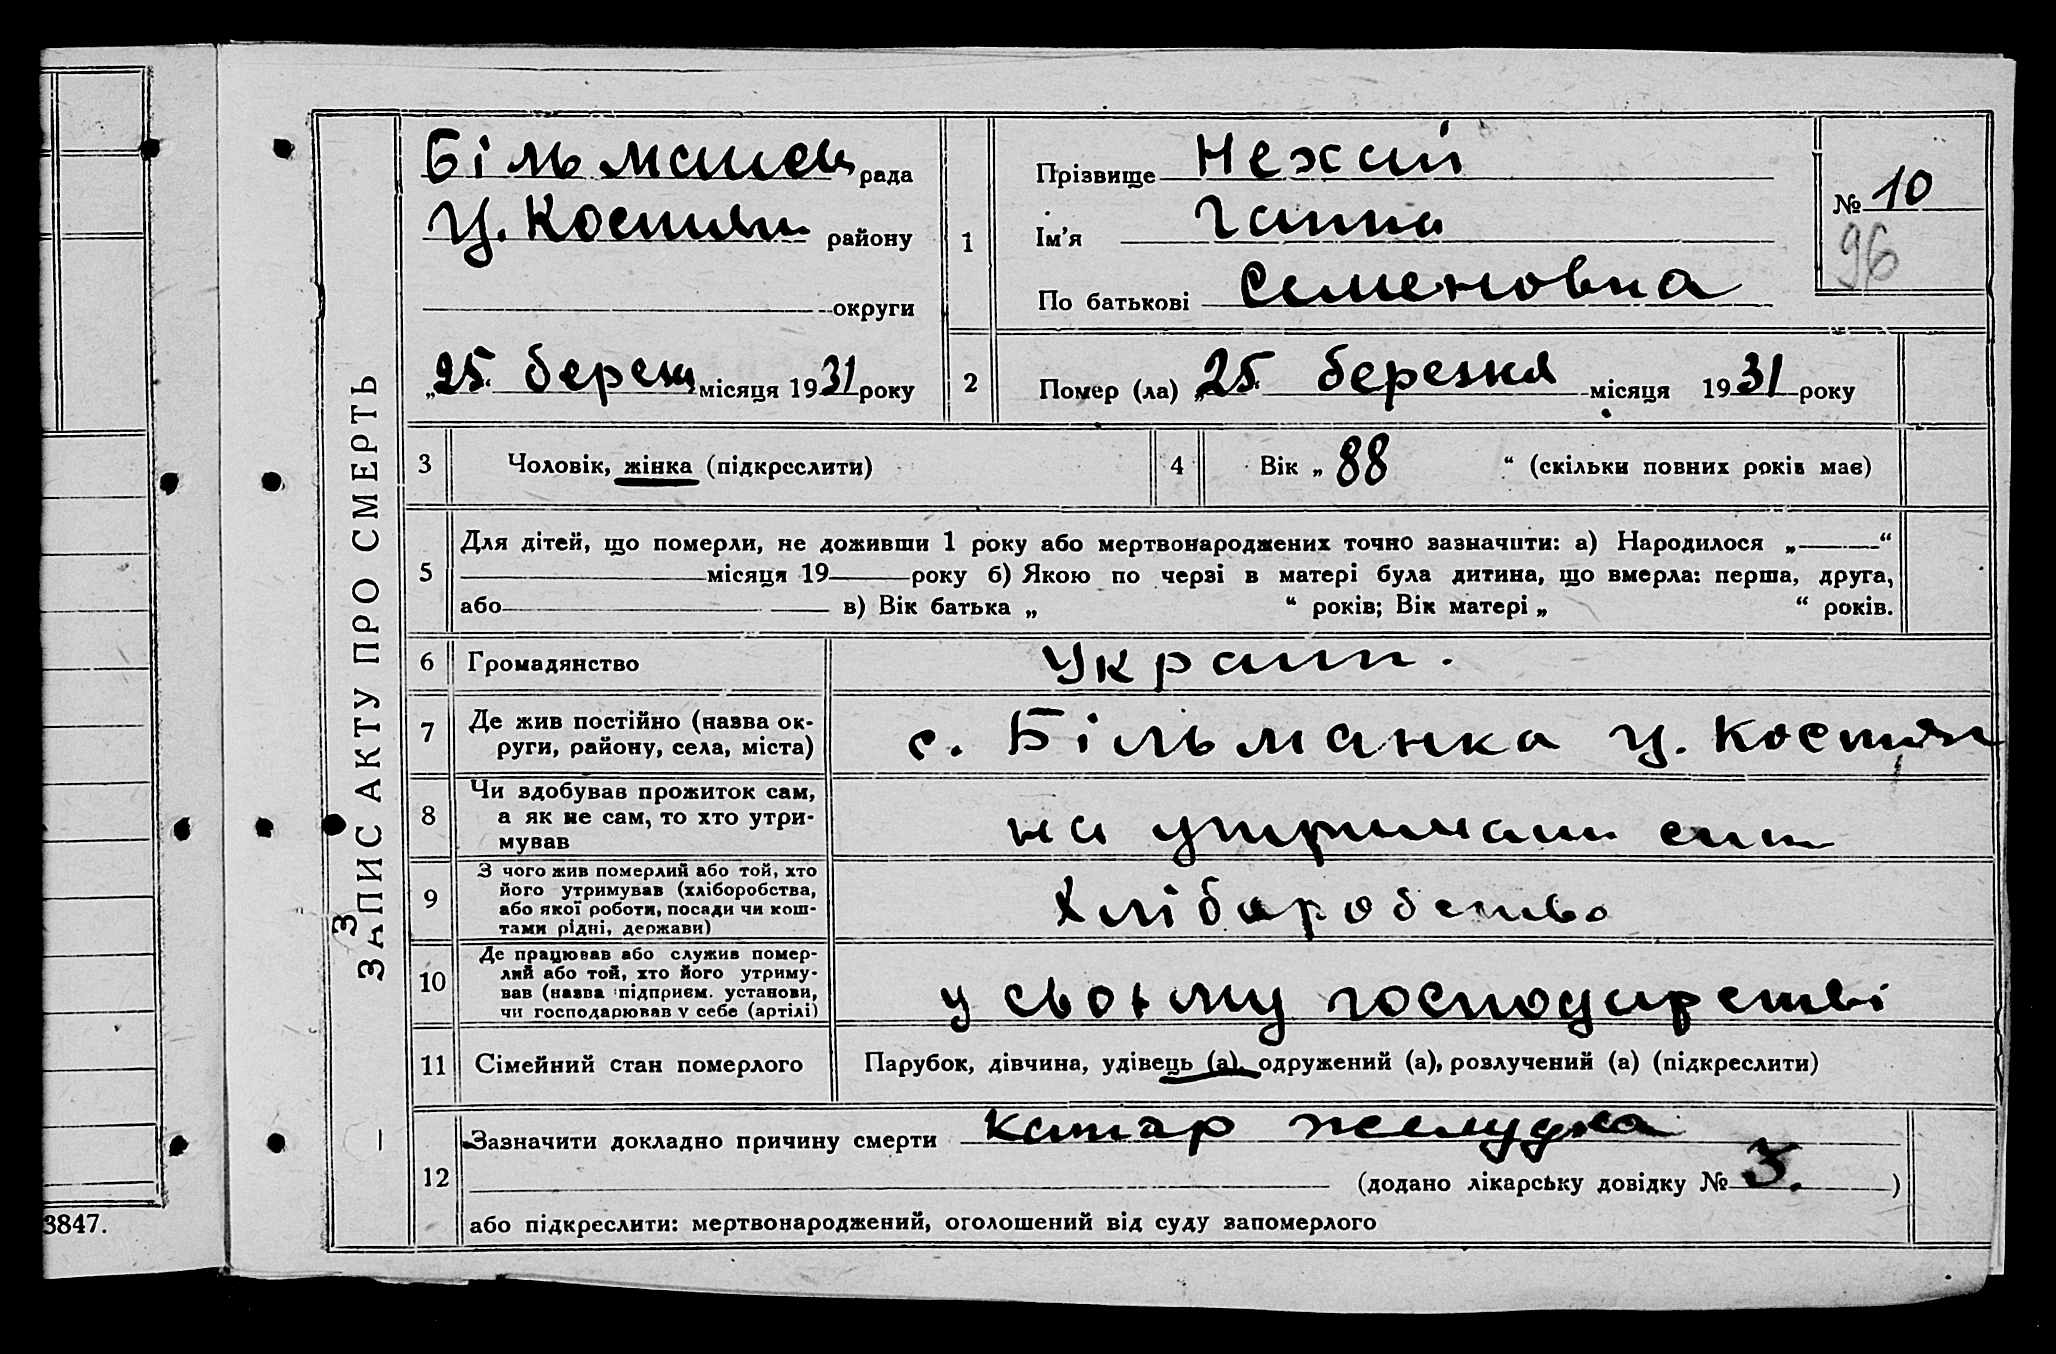 ЗАПИС АКТУ ПРО СМЕРТЬ
3
Більманец рада
Ц. Костян району
округи
„25. березн місяця 1931 року
1
Прізвище Нехай
Ім'я Ганна
По батькові Семеновна
№ 10
96
2
Помер (ла) „25. березня місяця 1931 року
3
Чоловік, жінка (підкреслити)
4
Вік „ 88 “ (скільки повних років має)
5
Для дітей, що померли, не доживши 1 року або мертвонароджених точно зазначити: а) Народилося „ “
місяця 19 року б) Якою по черзі в матері була дитина, що вмерла: перша, друга,
або в) Вік батька „ “ років; Вік матері „ “ років.
6
Громадянство
Украин.
7
Де жив постійно (назва ок-
руги, району, села, міста)
с. Більманка Ц. Костян
8
Чи здобував прожиток сам,
а як не сам, то хто утри-
мував
на утриманн син
9
З чого жив померлий або той, хто
його утримував (хліборобства,
або якої роботи, посади чи кош-
тами рідні, держави)
Хліборобство
10
Де працював або служив помер-
лий або той, хто його утриму-
вав (назва підприєм. установи,
чи господарював у себе (артілі)
у своєму господарстві
11
Сімейний стан померлого
Парубок, дівчина, удівець (а), одружений (а), розлучений (а) (підкреслити)
12
Зазначити докладно причину смерти катар желудка
(додано лікарську довідку № 3. )
або підкреслити: мертвонароджений, оголошений від суду запомерлого
3847.